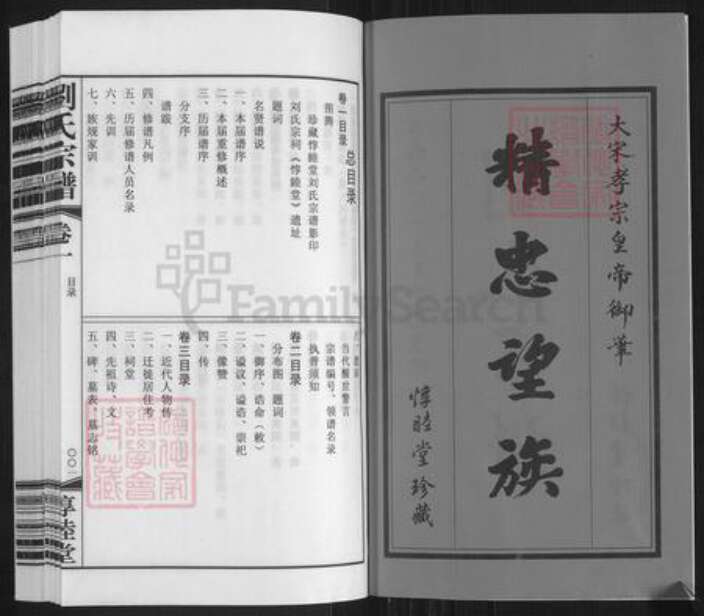 大宋孝宗皇帝御筆
精忠望族
惇睦堂珍藏
总目录
卷一目录
图腾
珍藏惇睦堂刘氏宗谱影印
刘氏宗祠《惇睦堂》遗址
题词
名贤谱说
一、本届谱序
二、本届重修概述
三、历届谱序
分支序
谱跋
四、修谱凡例
五、历届修谱人员名录
六、先训
七、族规家训
当代醒世警言
宗谱编号、领谱名录
执普须知
卷二目录
分布图 题词
一、御序、诰命(敕)
二、谥议、谥诰、崇祀
三、像赞
四、传
卷三目录
一、近代人物传
二、迁徙居住考
三、祠堂
四、先祖诗、文
五、碑、墓表、墓志铭
劉氏宗譜
卷一
目录
〇〇一
惇睦堂
FamilySearch